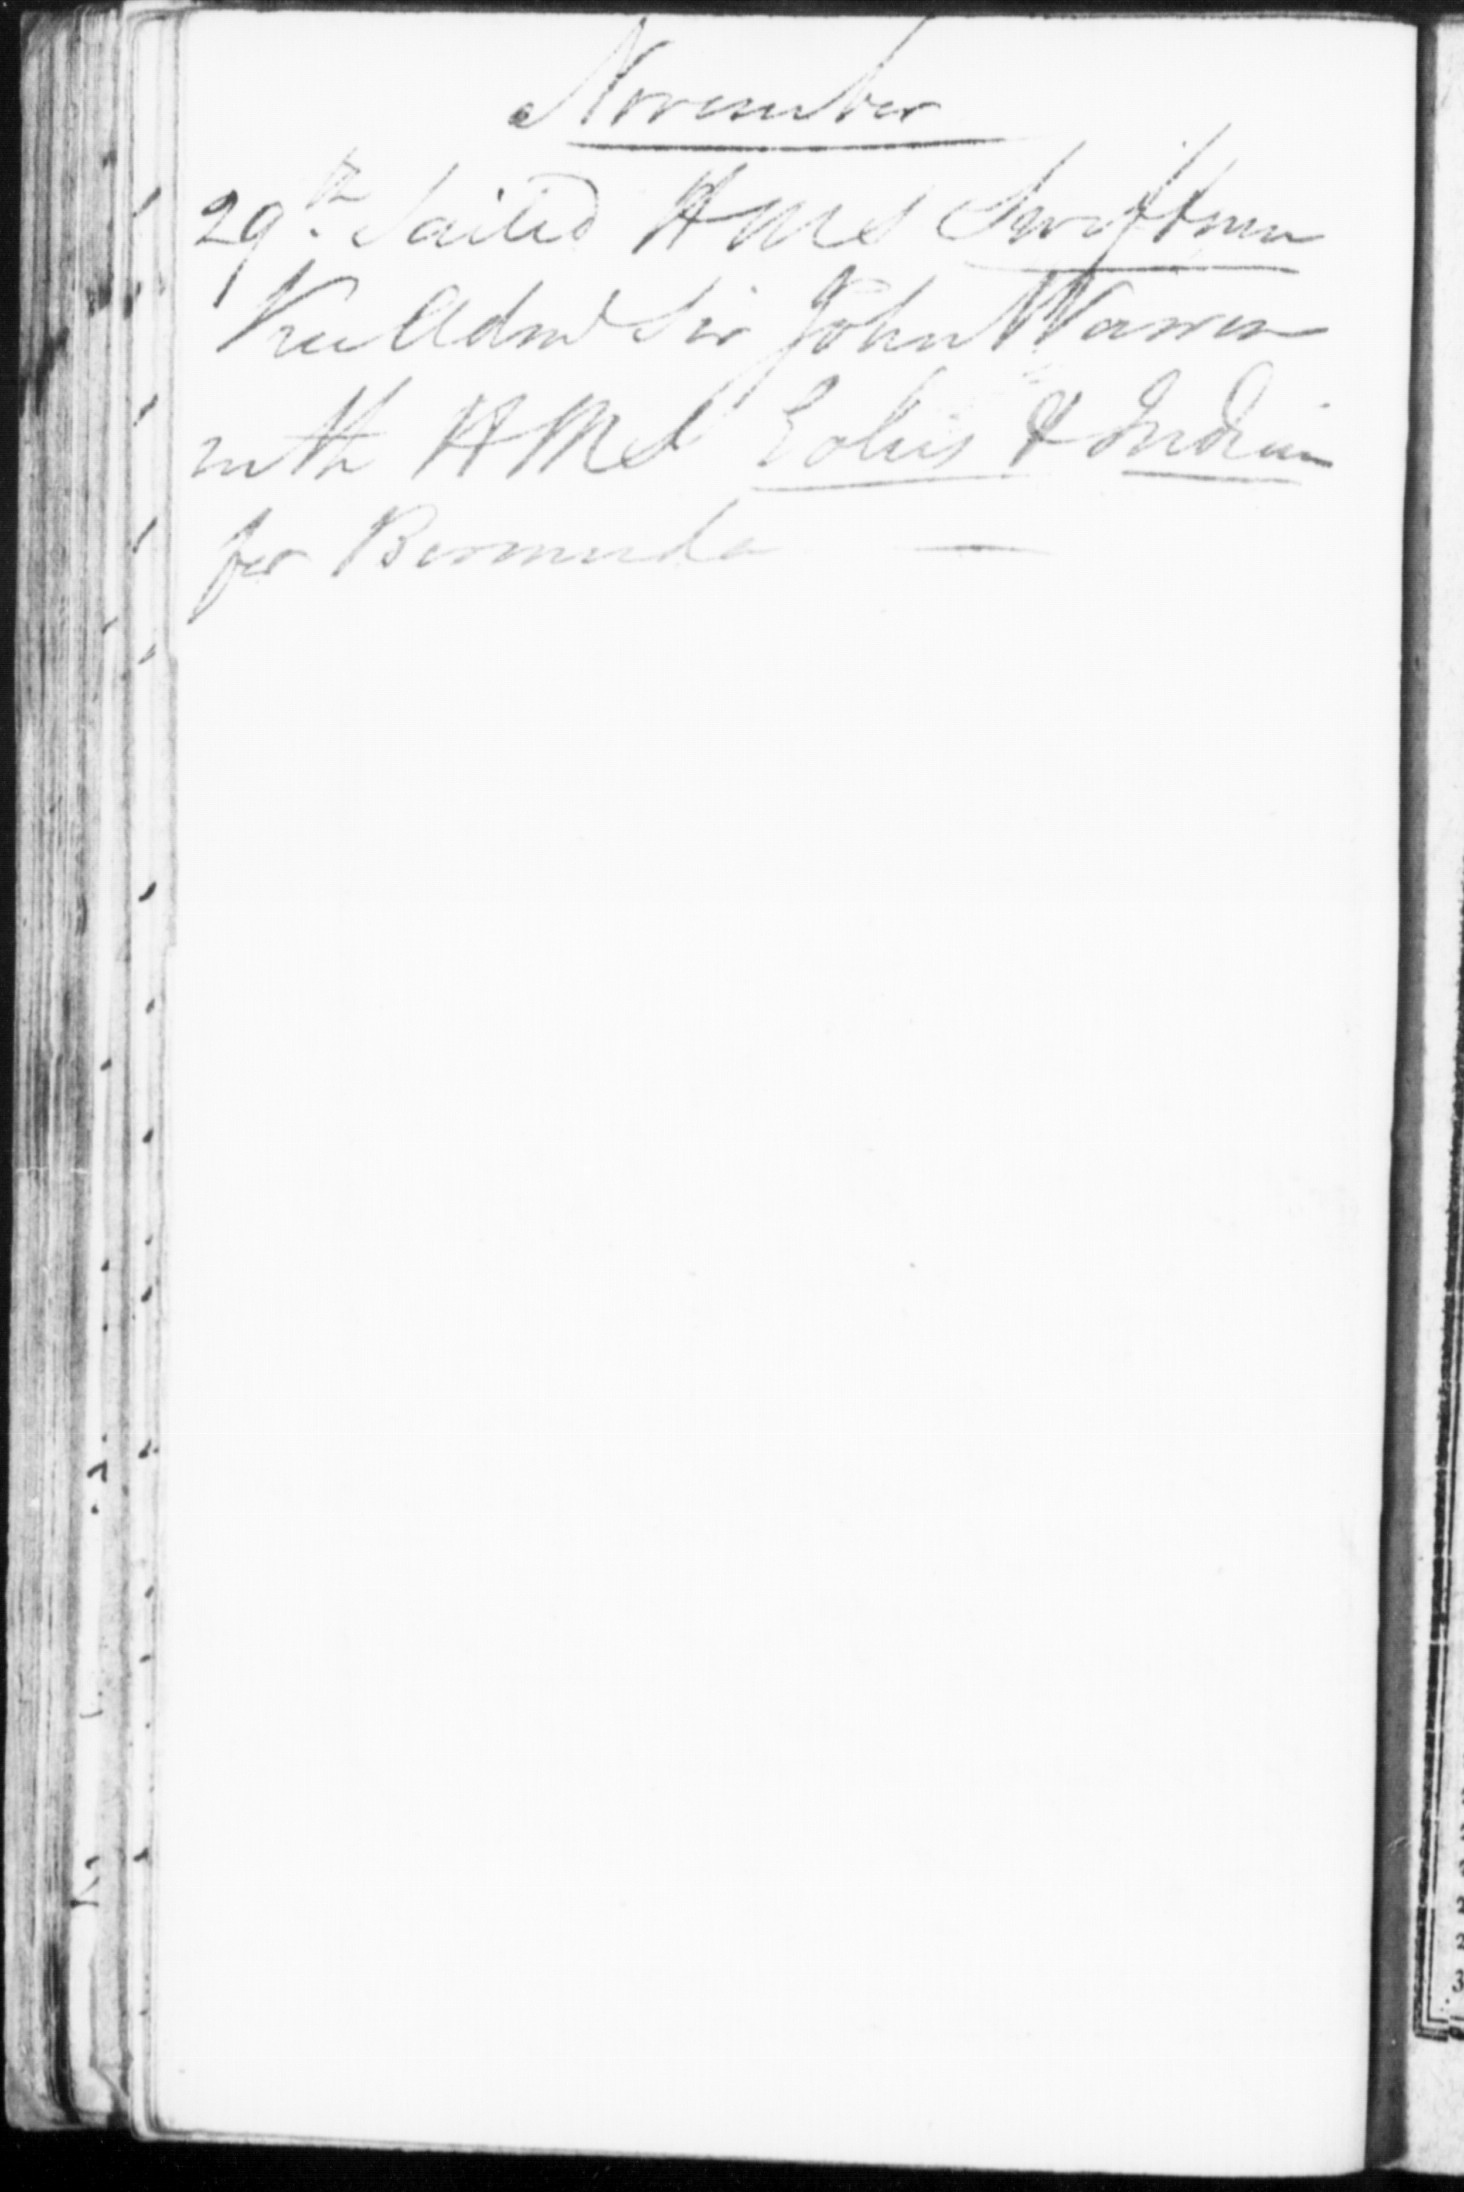 November
29th. Sailed HMS Swiftsure
Vice Adml Sir John Warren
with HMS Eolus & Indian
for Bermuda —